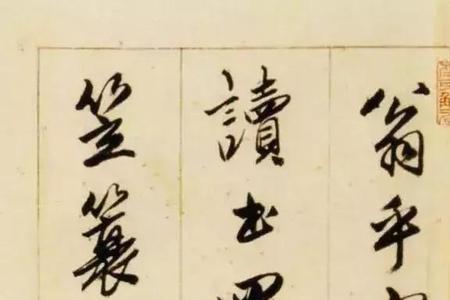 翁乎
讀書
笠簑